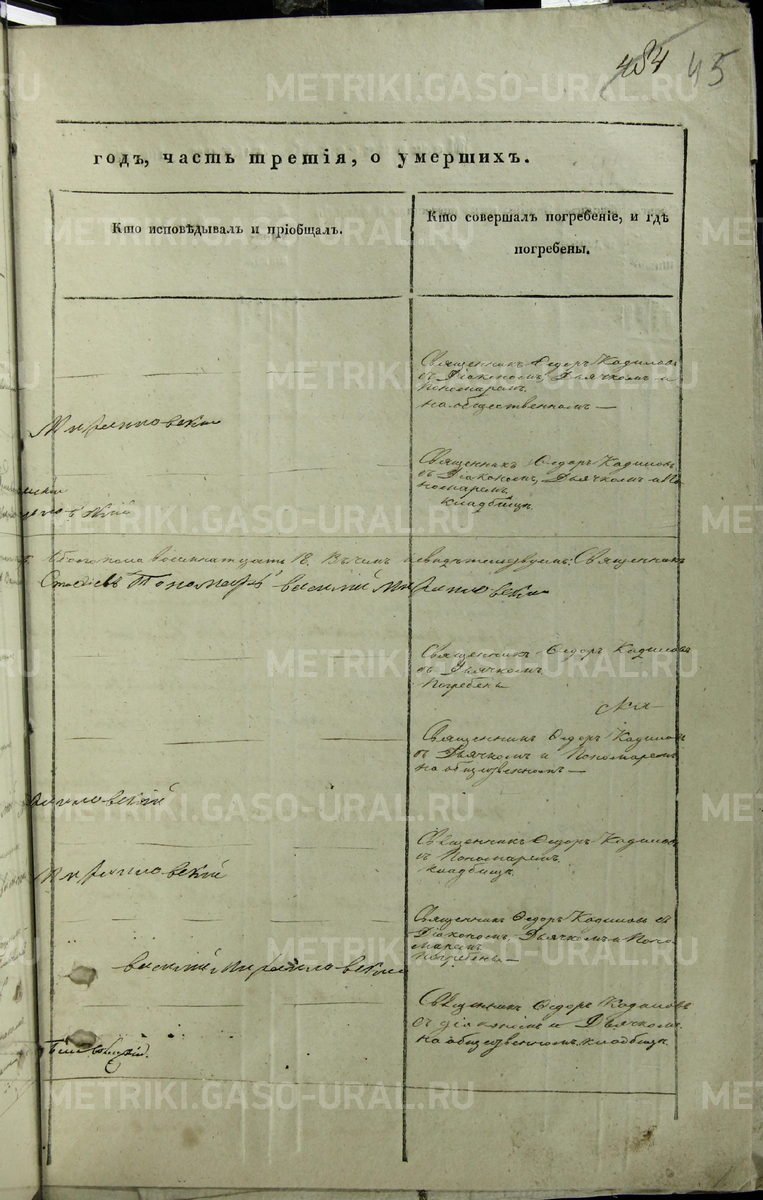 484 45
годъ, часть третія, о умершихъ.
Кто исповѣдывалъ и пріобщалъ.
Кто совершалъ погребеніе, и гдѣ
погребены.
Священникъ Ѳедоръ Кадиловъ
съ Діакономъ, Дьячкомъ и
Пономаремъ.
на общественномъ
Священникъ Ѳедоръ Кадиловъ
съ Діакономъ, Дьячкомъ и По
номаремъ
кладбищѣ
18. В чемъ и свидѣтельствуемъ: Священникъ
Пономарь василий
Священникъ Ѳедоръ Кадиловъ
съ Дьячкомъ
Погребены
Священникъ Ѳедоръ Кадиловъ
съ Дьячкомъ и Пономаремъ
на общественномъ
Священникъ Ѳедоръ Кадиловъ
съ Пономаремъ
кладбищѣ
Священникъ Ѳедоръ Кадиловъ съ
Діакономъ, Дьячкомъ и Поно
маремъ
Погребены
василий
Священникъ Ѳедоръ Кадиловъ
съ діакономъ и Дьячкомъ
на общественномъ кладбищѣ
METRIKI.GASO-URAL.RU